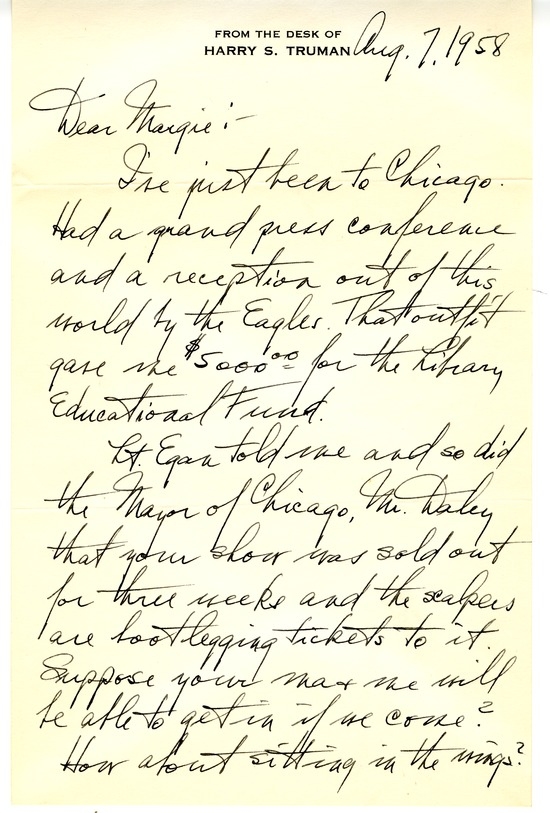 FROM THE DESK OF
HARRY S. TRUMAN Aug. 7, 1958
Dear Margie:-
I've just been to Chicago.
Had a grand press conference
and a reception out of this
world by the Eagles. That outfit
gave me $5000.00 for the Library
Educational Fund.
Lt. Egan told me and so did
the Mayor of Chicago, Mr. Daley
that your show was sold out
for three weeks and the scalpers
are bootlegging tickets to it.
Suppose your ma & me will
be able to get in if we come?
How about sitting in the wings?